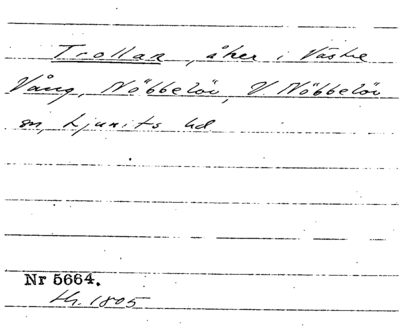 Trollar, åker i Västre
Vång, Nöbbelöv, V Nöbbelöv
sn, Ljunits hd
Nr 5664.
th. 1805